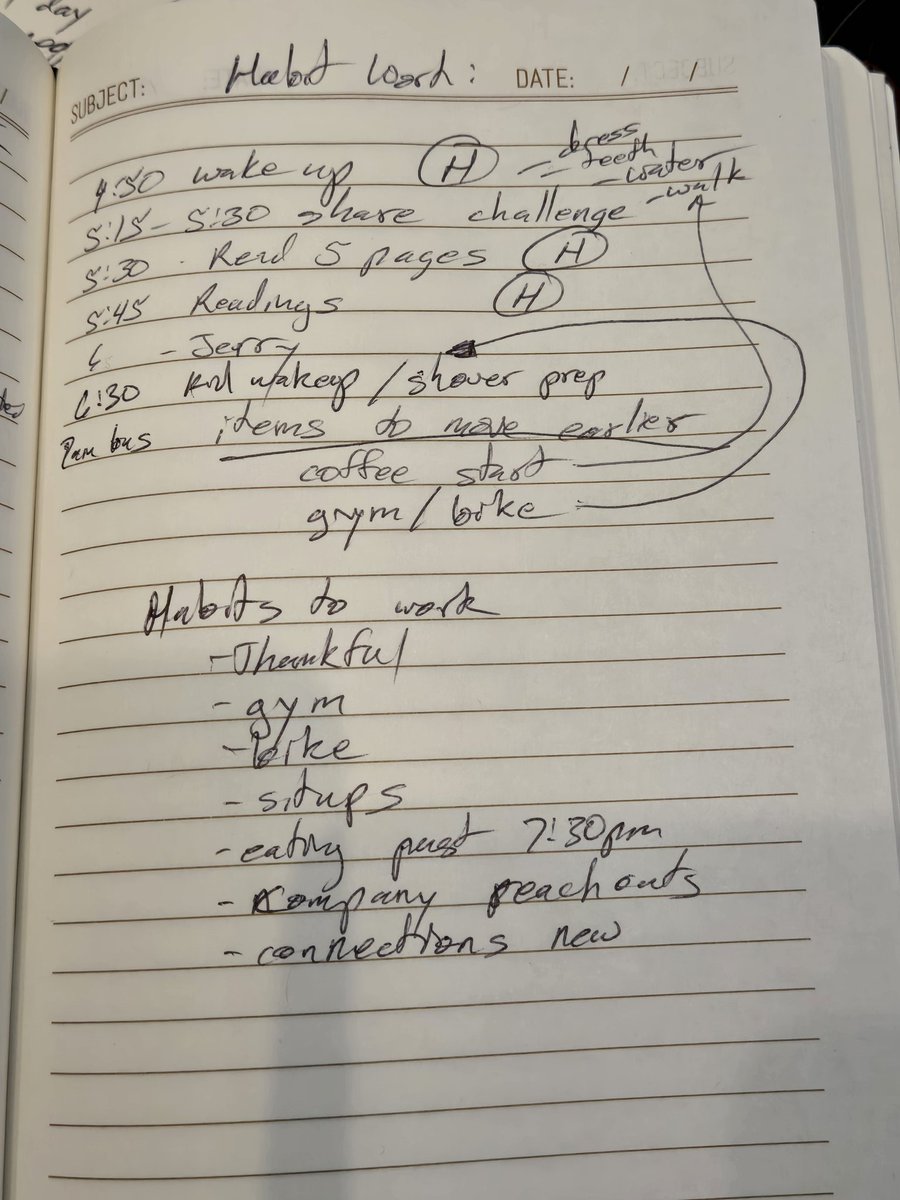 day
SUBJECT: Habit Work: DATE: / /
4:30 wake up H - dress
- teeth
- water
- walk
5:15 - 5:30 share challenge
5:30 - Read 5 pages H
5:45 Readings H
6 - Jerry
6:30 Kid wakeup / shower prep
7am bus items to move earlier
coffee start
gym / bike
Habits to work
- Thankful
- gym
- bike
- situps
- eating past 7:30pm
- Company reach outs
- connections new